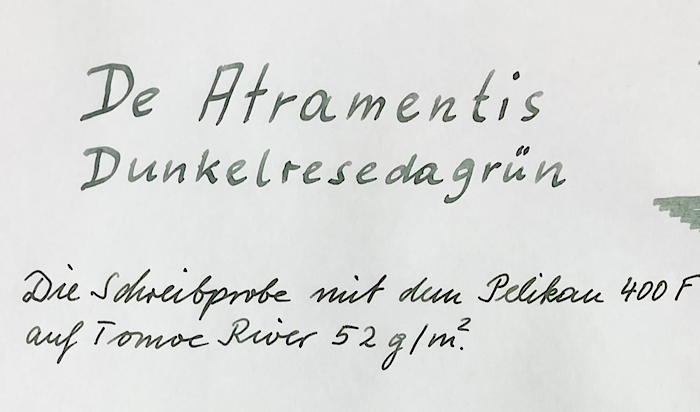 De Atramentis
Dunkelresedagrün
Die Schreibprobe mit dem Pelikan 400 F
auf Tomoe River 52 g/m².